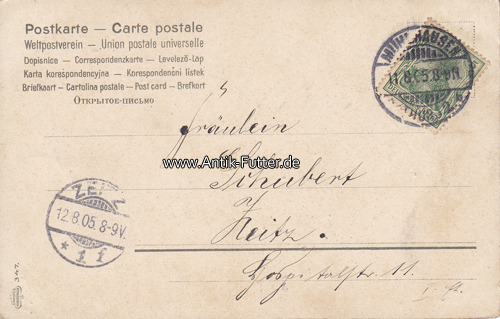 Postkarte — Carte postale
Weltpostverein — Union postale universelle
Dopisnice — Correspondenzkarte — Levelező-Lap
Karta korespondencyjna — Korespondenční lístek
Briefkaart — Cartolina postale — Post card — Brefkort
Открытое письмо
MÜHLHAUSEN
8-9N.
Fräulein
www.Antik-Futter.de
Schubert
Zeitz.
Hospitalstr. 11.
ZEITZ
12.8.05. 8-9V.
* 1. f
347.